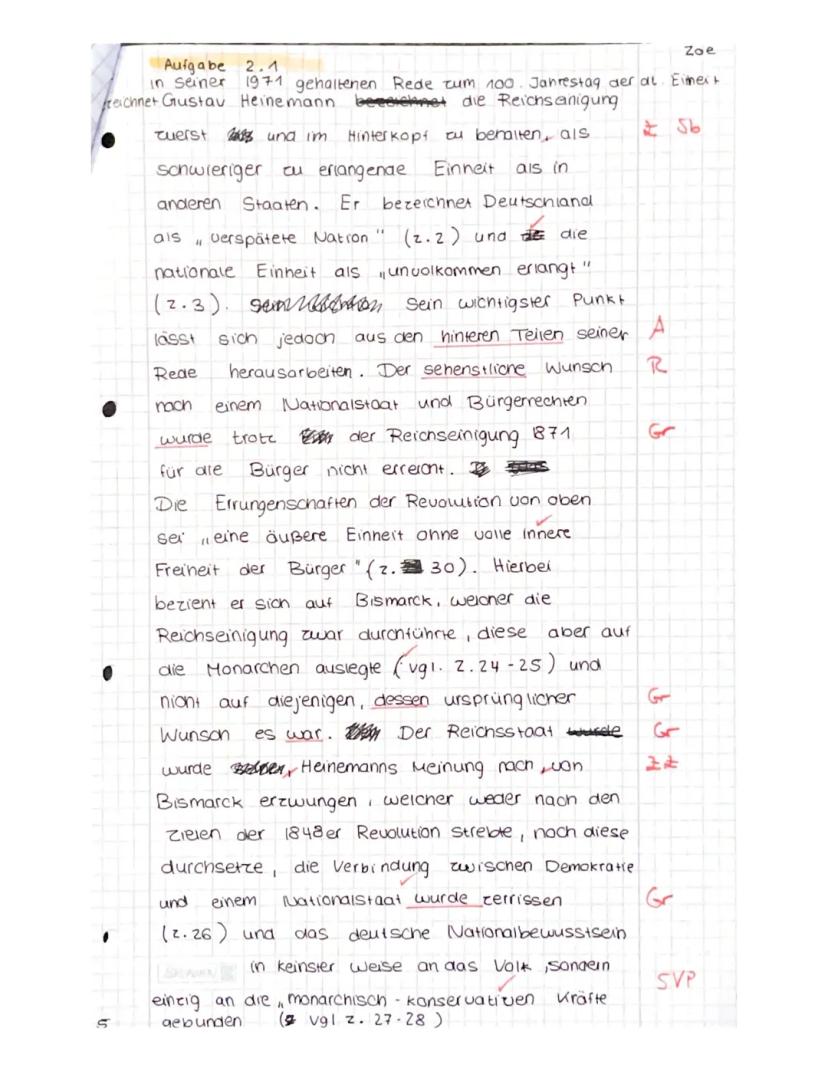 Zoe
Aufgabe 2.1
in seiner 1971 gehaltenen Rede zum 100. Jahrestag der dt. Einheit
zeichnet Gustav Heinemann bezeichnet die Reichseinigung
zuerst und im Hinterkopf zu behalten, als Z Sb
schwieriger zu erlangende Einheit als in
anderen Staaten. Er bezeichnet Deutschland
als „verspätete Nation" (z.2) und die
nationale Einheit als „unvolkommen erlangt"
(z.3). Sein wichtigster Punkt
lässt sich jedoch aus den hinteren Teilen seiner A
Rede herausarbeiten. Der sehenstliche Wunsch R
nach einem Nationalstaat und Bürgerrechten
wurde trotz der Reichseinigung 1871 Gr
für die Bürger nicht erreicht.
Die Errungenschaften der Revolution von oben
sei „eine äußere Einheit ohne volle innere
Freiheit der Bürger" (z. 30). Hierbei
bezieht er sich auf Bismarck, welcher die
Reichseinigung zwar durchführte, diese aber auf
die Monarchen auslegte (vgl. z.24-25) und
nicht auf diejenigen, dessen ursprünglicher Gr
Wunsch es war. Der Reichsstaat wurde Gr
wurde Heinemanns Meinung nach, von ZZ
Bismarck erzwungen, welcher weder nach den
Zielen der 1848er Revolution strebte, noch diese
durchsetze, die Verbindung zwischen Demokratie
und einem Nationalstaat wurde zerrissen Gr
(z.26) und das deutsche Nationalbewusstsein
in keinster weise an das Volk, sondern SVP
einzig an die „monarchisch-konservativen Kräfte
gebunden (vgl z. 27-28)